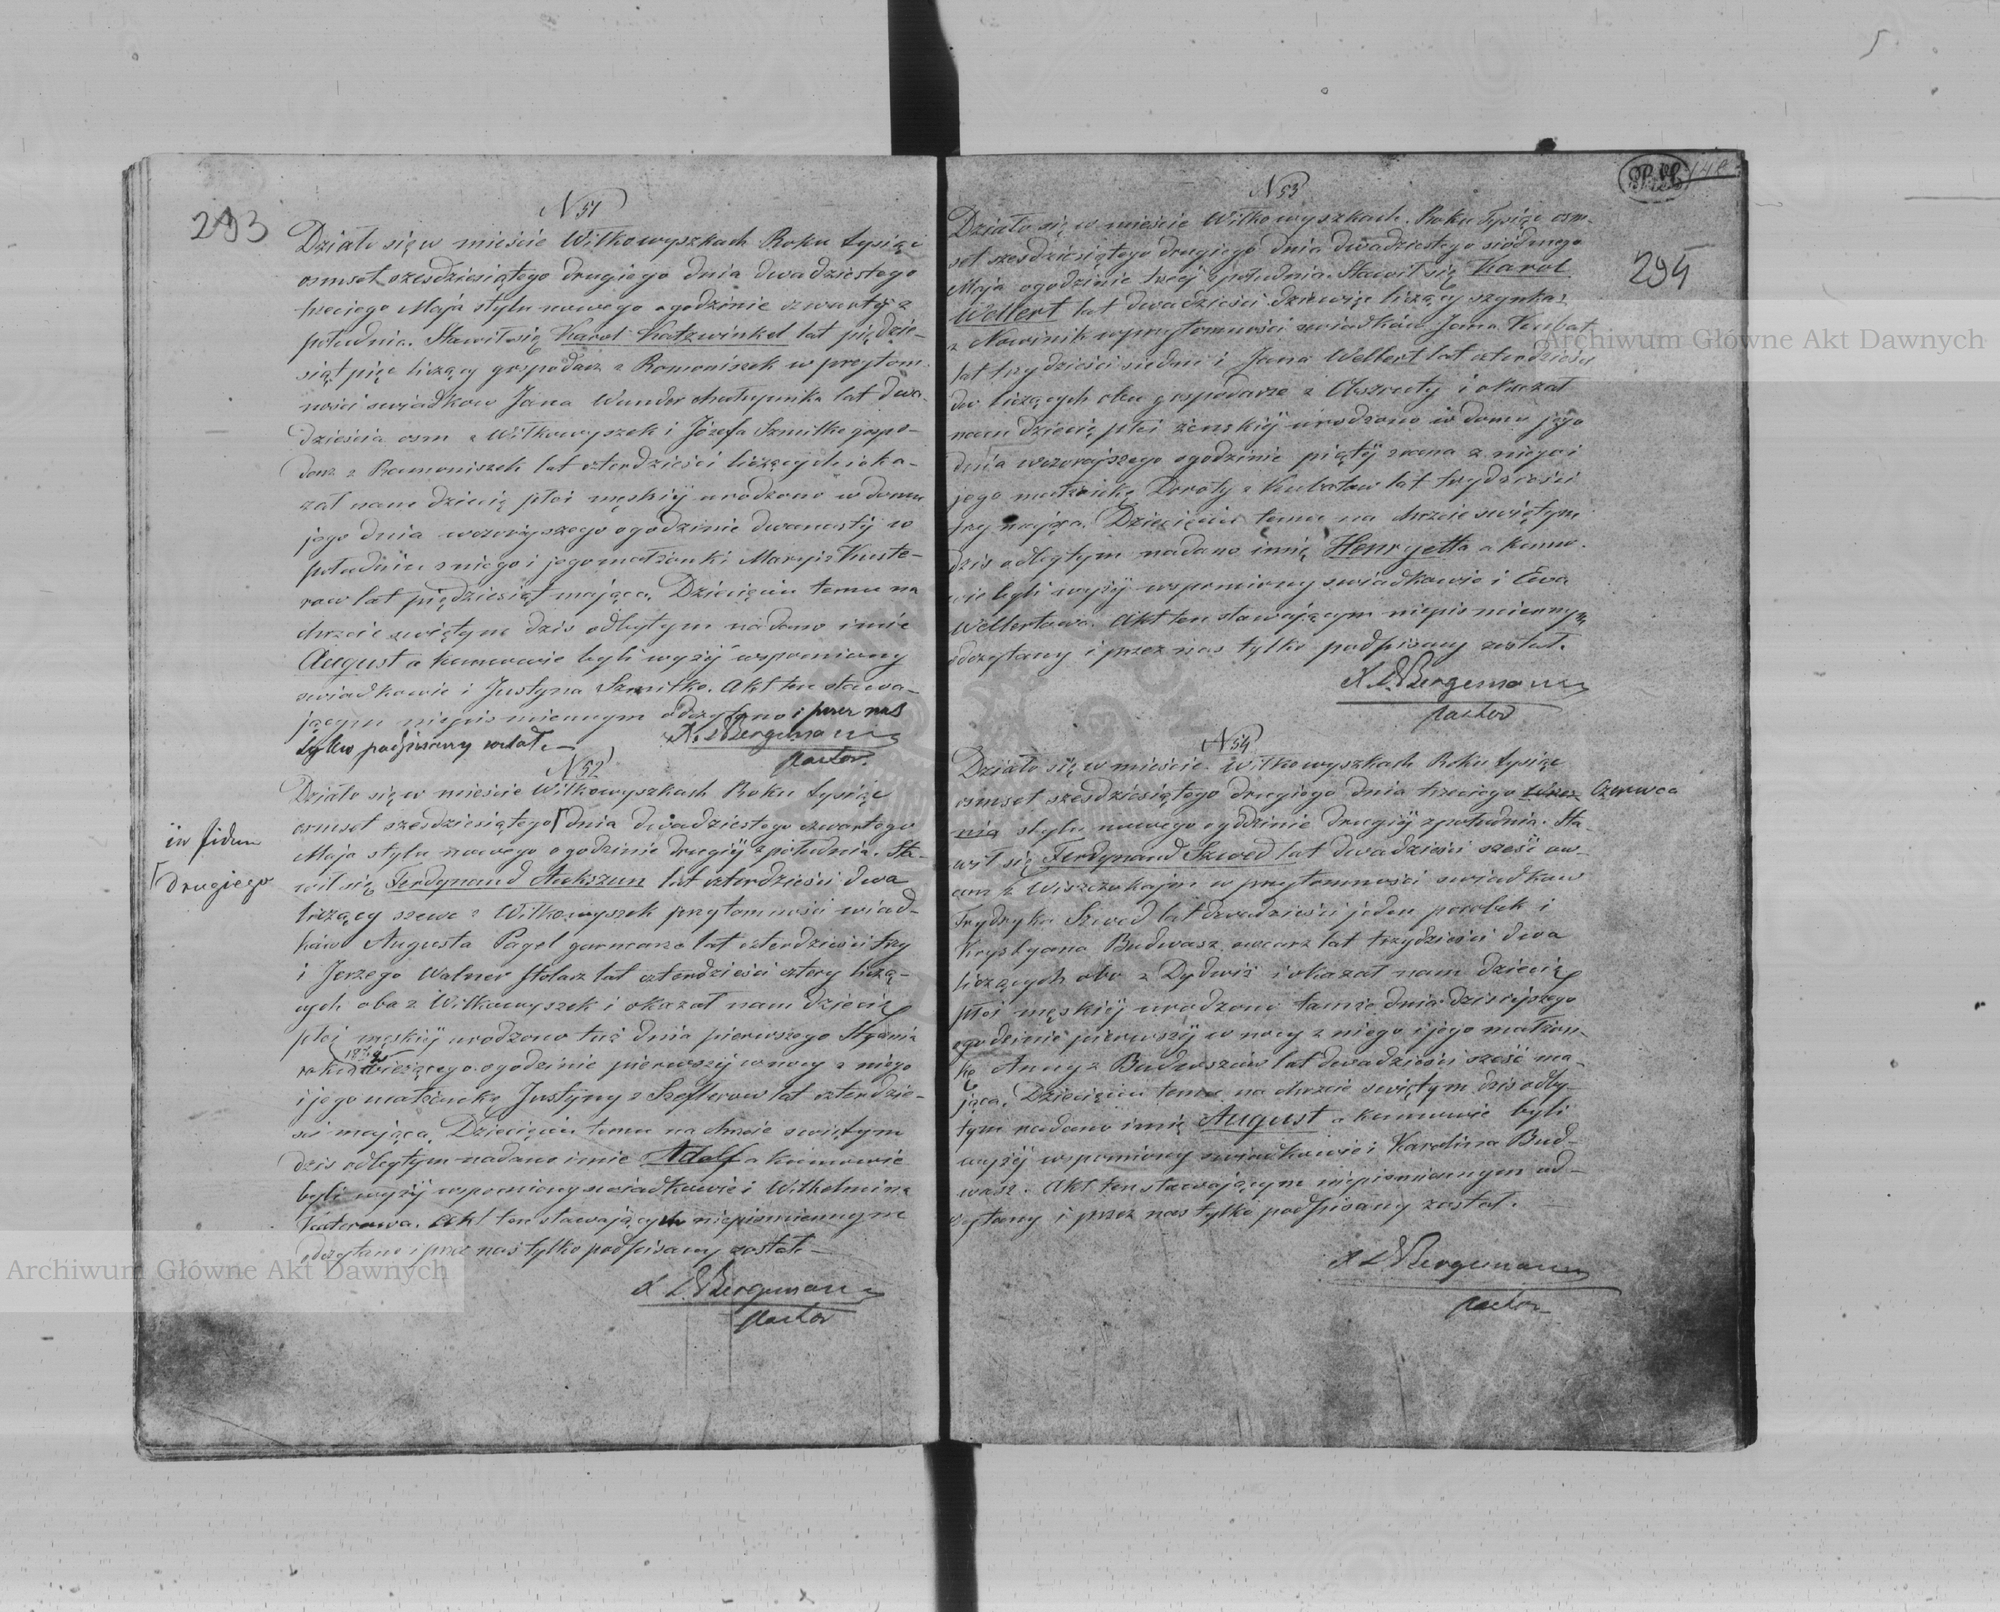 293
N 51
Działo się w mieście Wilkowyszkach Roku tysiąc
osmset szesdziesiątego drugiego dnia dwadziestego
trzeciego Maja stylu nowego o godzinie czwartej z
południa. Stawił się Karol Katzwinkel lat pięćdzie-
siąt pięc liczący gospodarz z Romaniszek w przytom-
ności swiadkow Jana Wunder chałupnika lat dwa-
dzieścia osm z Wilkowyszek i Józefa Szmitke gospo-
darz z Romaniszek lat czterdzieści liczących i oka-
zał nam dziecię płci męskiéj urodzone w domu
jego dnia wczorajszego o godzinie dwunastéj w
południe z niego i jego małżonki Maryi z Kuste-
row lat pięćdziesiąt mającą. Dziecięciu temu na
chrzcie swiętym dzis odbytym nadano imie
August a kumowie byli wyżéj wspomniony
swiadkowie i Justyna Szmitke. Akt ten stawa-
jącym niepismiennym odczytano i przez nas
tylko podpisany został.
X. L. Bergemann
pastor
N 52
Działo się w mieście Wilkowyszkach Roku tysiąc
osmset szesdziesiątego dnia dwadziestego czwartego
in fidem
Maja stylu nowego o godzinie drugiéj z południa. Sta-
drugiego
wił się Ferdynand Stukszun lat czterdzieści dwa
liczący szewc z Wilkowyszek przytomności swiad-
ków Augusta Pagel garncarza lat czterdzieści trzy
i Jerzego Walner stolarz lat czterdzieści cztery liczą-
cych oba z Wilkowyszek i okazał nam dziecię
płci męskiéj urodzono tuż dnia pierwszego Stycznia
roku bieżącego o godzinie pierwszéj w nocy z niego
i jego małżonkę Justyny z Szeflerow lat czterdzie-
sci mającą. Dziecięciu temu na chrzcie swiętym
dzis odbytym nadano imie Adolf a kumowie
byli wyżéj wspomniony swiadkowie i Wilhelmina
Akt ten stawających niepismiennym
odczytano i przez nas tylko podpisany został.
X L. Bergemann
pastor
N 53
Działo się w mieście Wilkowyszkach Roku tysiąc osm-
set szesdziesiątego drugiego dnia dwadziestego siódmego
Maja o godzinie trzéj z południa. Stawił się Karol
294
Wellert lat dwadzieścia dziewięc liczący szynkarz
z Nowinik w przytomności swiadków Jana Kubat
lat trzydzieści siedm i Jana Wellert lat czterdzieści
dwa liczących obu gospodarze z Obszruty i okazał
nam dziecię płci żeńskiéj urodzono w domu jego
dnia wczorajszego o godzinie piątéj z rana z niego i
jego małżonkę Doroty z Kubatow lat trzydzieści
trzy mającą. Dziecięciu temu na chrzcie swiętym
dzis odbytym nadano imię Henryetta a kumo-
wie byli wyżéj wspomniony swiadkowie i Ewa
Wellertowa. Akt ten stawającym niepismiennym
odczytany i przez nas tylko podpisany został.
X L. Bergemann
pastor
N 54
Działo się w mieście Wilkowyszkach Roku tysiąc
osmset szesdziesiątego drugiego dnia trzeciego Czerwca
stylu nowego o godzinie drugiéj z południa. Sta-
wił się Ferdynand Szwed lat dwadzieścia sześć ow-
czarz z w przytomności swiadkow
Frydryka Szwed lat dwadzieścia jeden parobek i
Krystyana Budwasz owczarz lat trzydzieści dwa
liczących oba z Dydwiż i okazał nam dziecię
płci męskiéj urodzono tamże dnia dzisiejszego
o godzinie pierwszéj w nocy z niego i jego małżon-
kę Anny z Budwaszów lat dwadzieścia sześć ma-
jąca. Dziecięciu temu na chrzcie swiętym dzis odby-
tym nadano imię August a kumowie byli
wyżéj wspomniony swiadkowie i Karolina Bud-
wasz. Akt ten stawającym niepismiennym od-
czytany i przez nas tylko podpisany został.
X L Bergemann
pastor
Archiwum Główne Akt Dawnych
Archiwum Główne Akt Dawnych